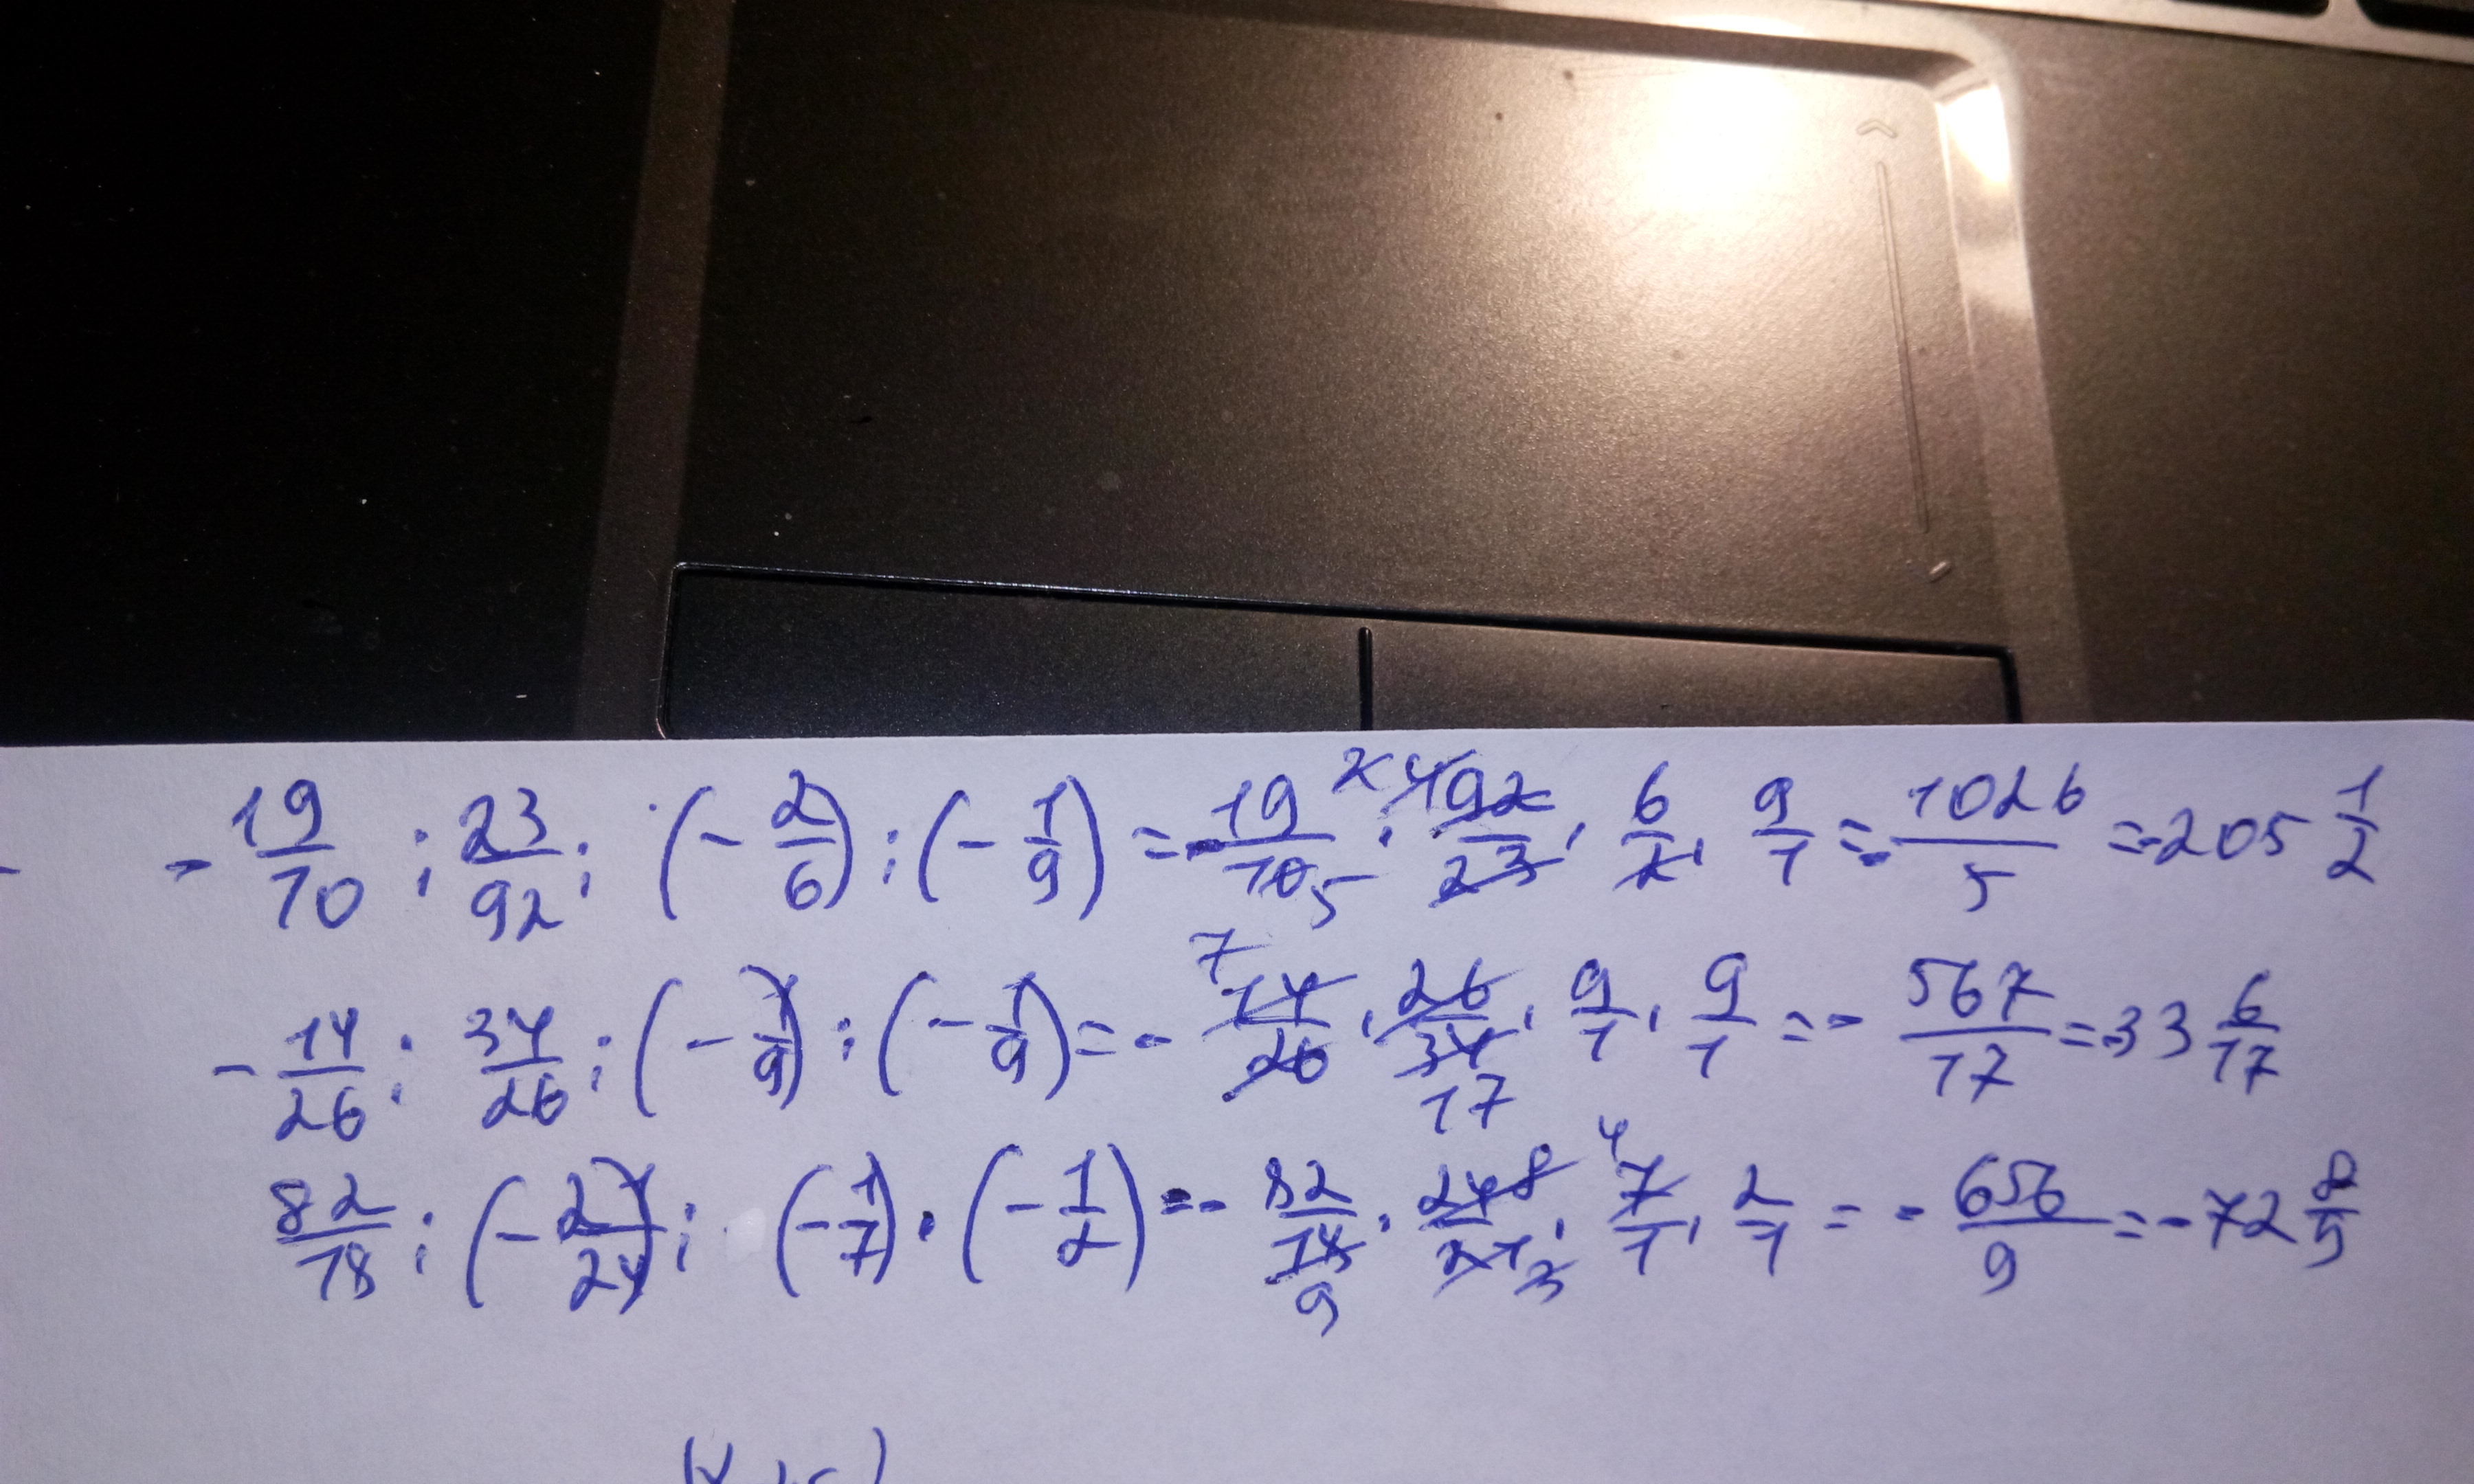 - 19/70 : 23/92 : (- 2/6) : (- 1/9) = - 19/70 5 · 2 4 92/23 · 6/2 · 9/1 = - 1026/5 = -205 1/2
- 14/26 : 34/26 : (- 1/9) : (- 1/9) = - 7 14/26 · 26/34 17 · 9/1 · 9/1 = - 567/17 = -33 6/17
82/18 : (- 21/24) : (- 1/7) · (- 1/2) = - 82/18 9 · 24 8/21 3 · 7/1 · 2/1 = - 656/9 = -72 8/9